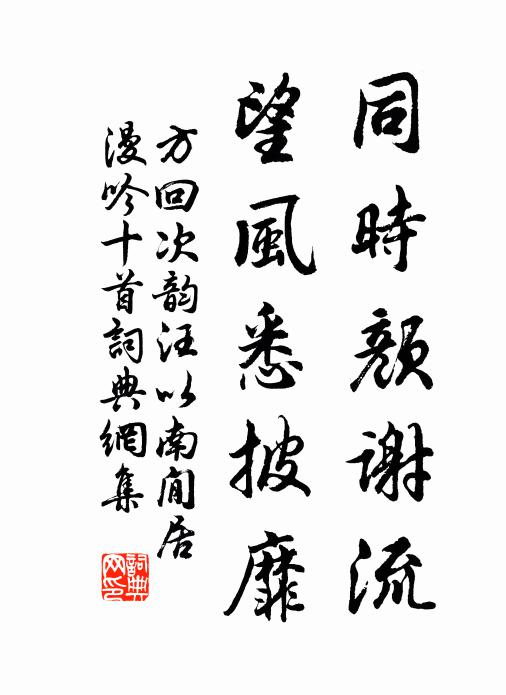 同時顏謝流
望風悉披靡
方回次韵汪以南閒居
漫吟十首詞典網集
詞典网印